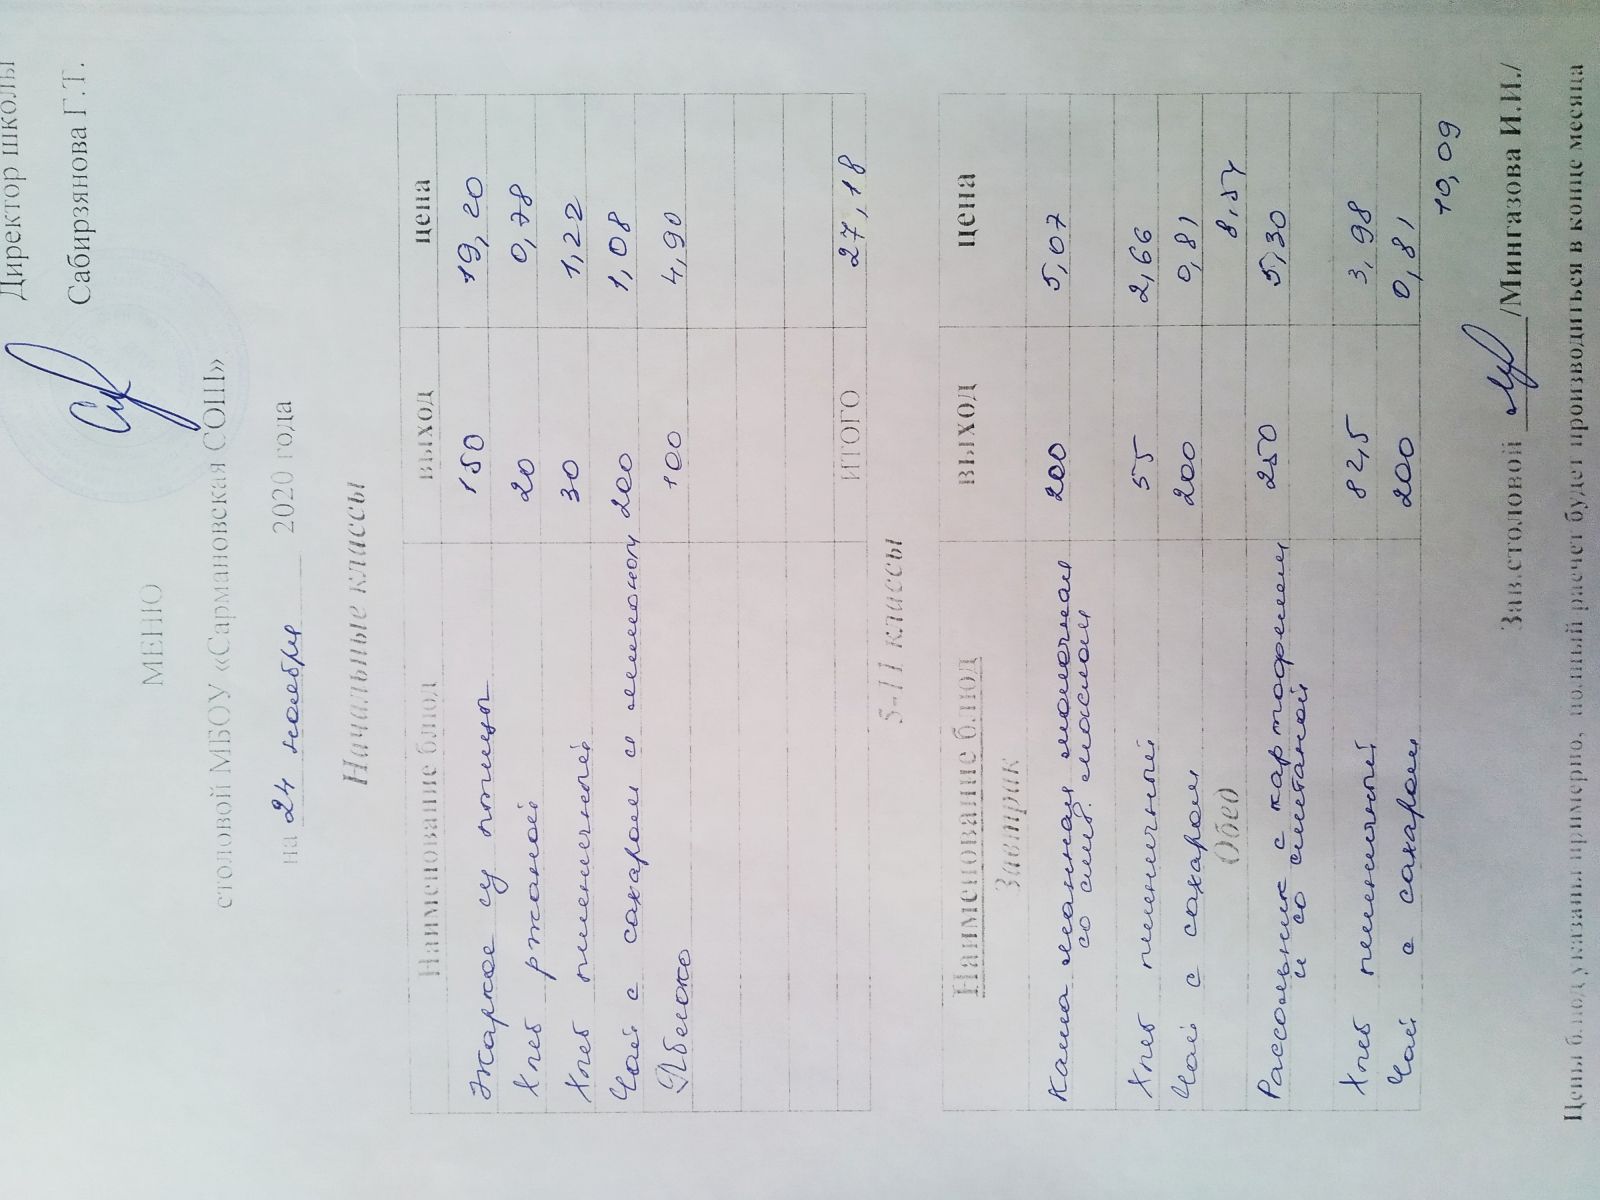 Директор школы
Сабирзянова Г.Т.
МЕНЮ
столовой МБОУ «Сармановская СОШ»
на 24 ноября 2020 года
Начальные классы
Наименование блюд выход цена
Жаркое из птицы 150 19,20
Хлеб ржаной 20 0,78
Хлеб пшеничный 30 1,22
Чай с сахаром с лимоном 200 1,08
Яблоко 100 4,90
ИТОГО 27,18
5-11 классы
Наименование блюд выход цена
Завтрак
Каша манная молочная 200 5,07
со слив. маслом
Хлеб пшеничный 55 2,66
Чай с сахаром 200 0,81
Обед 8,54
Рассольник с картофелем 250 5,30
и со сметаной
Хлеб пшеничный 82,5 3,98
Чай с сахаром 200 0,81
10,09
Зав.столовой /Мингазова И.И./
Цены блюд указаны примерно, полный расчет будет производиться в конце месяца